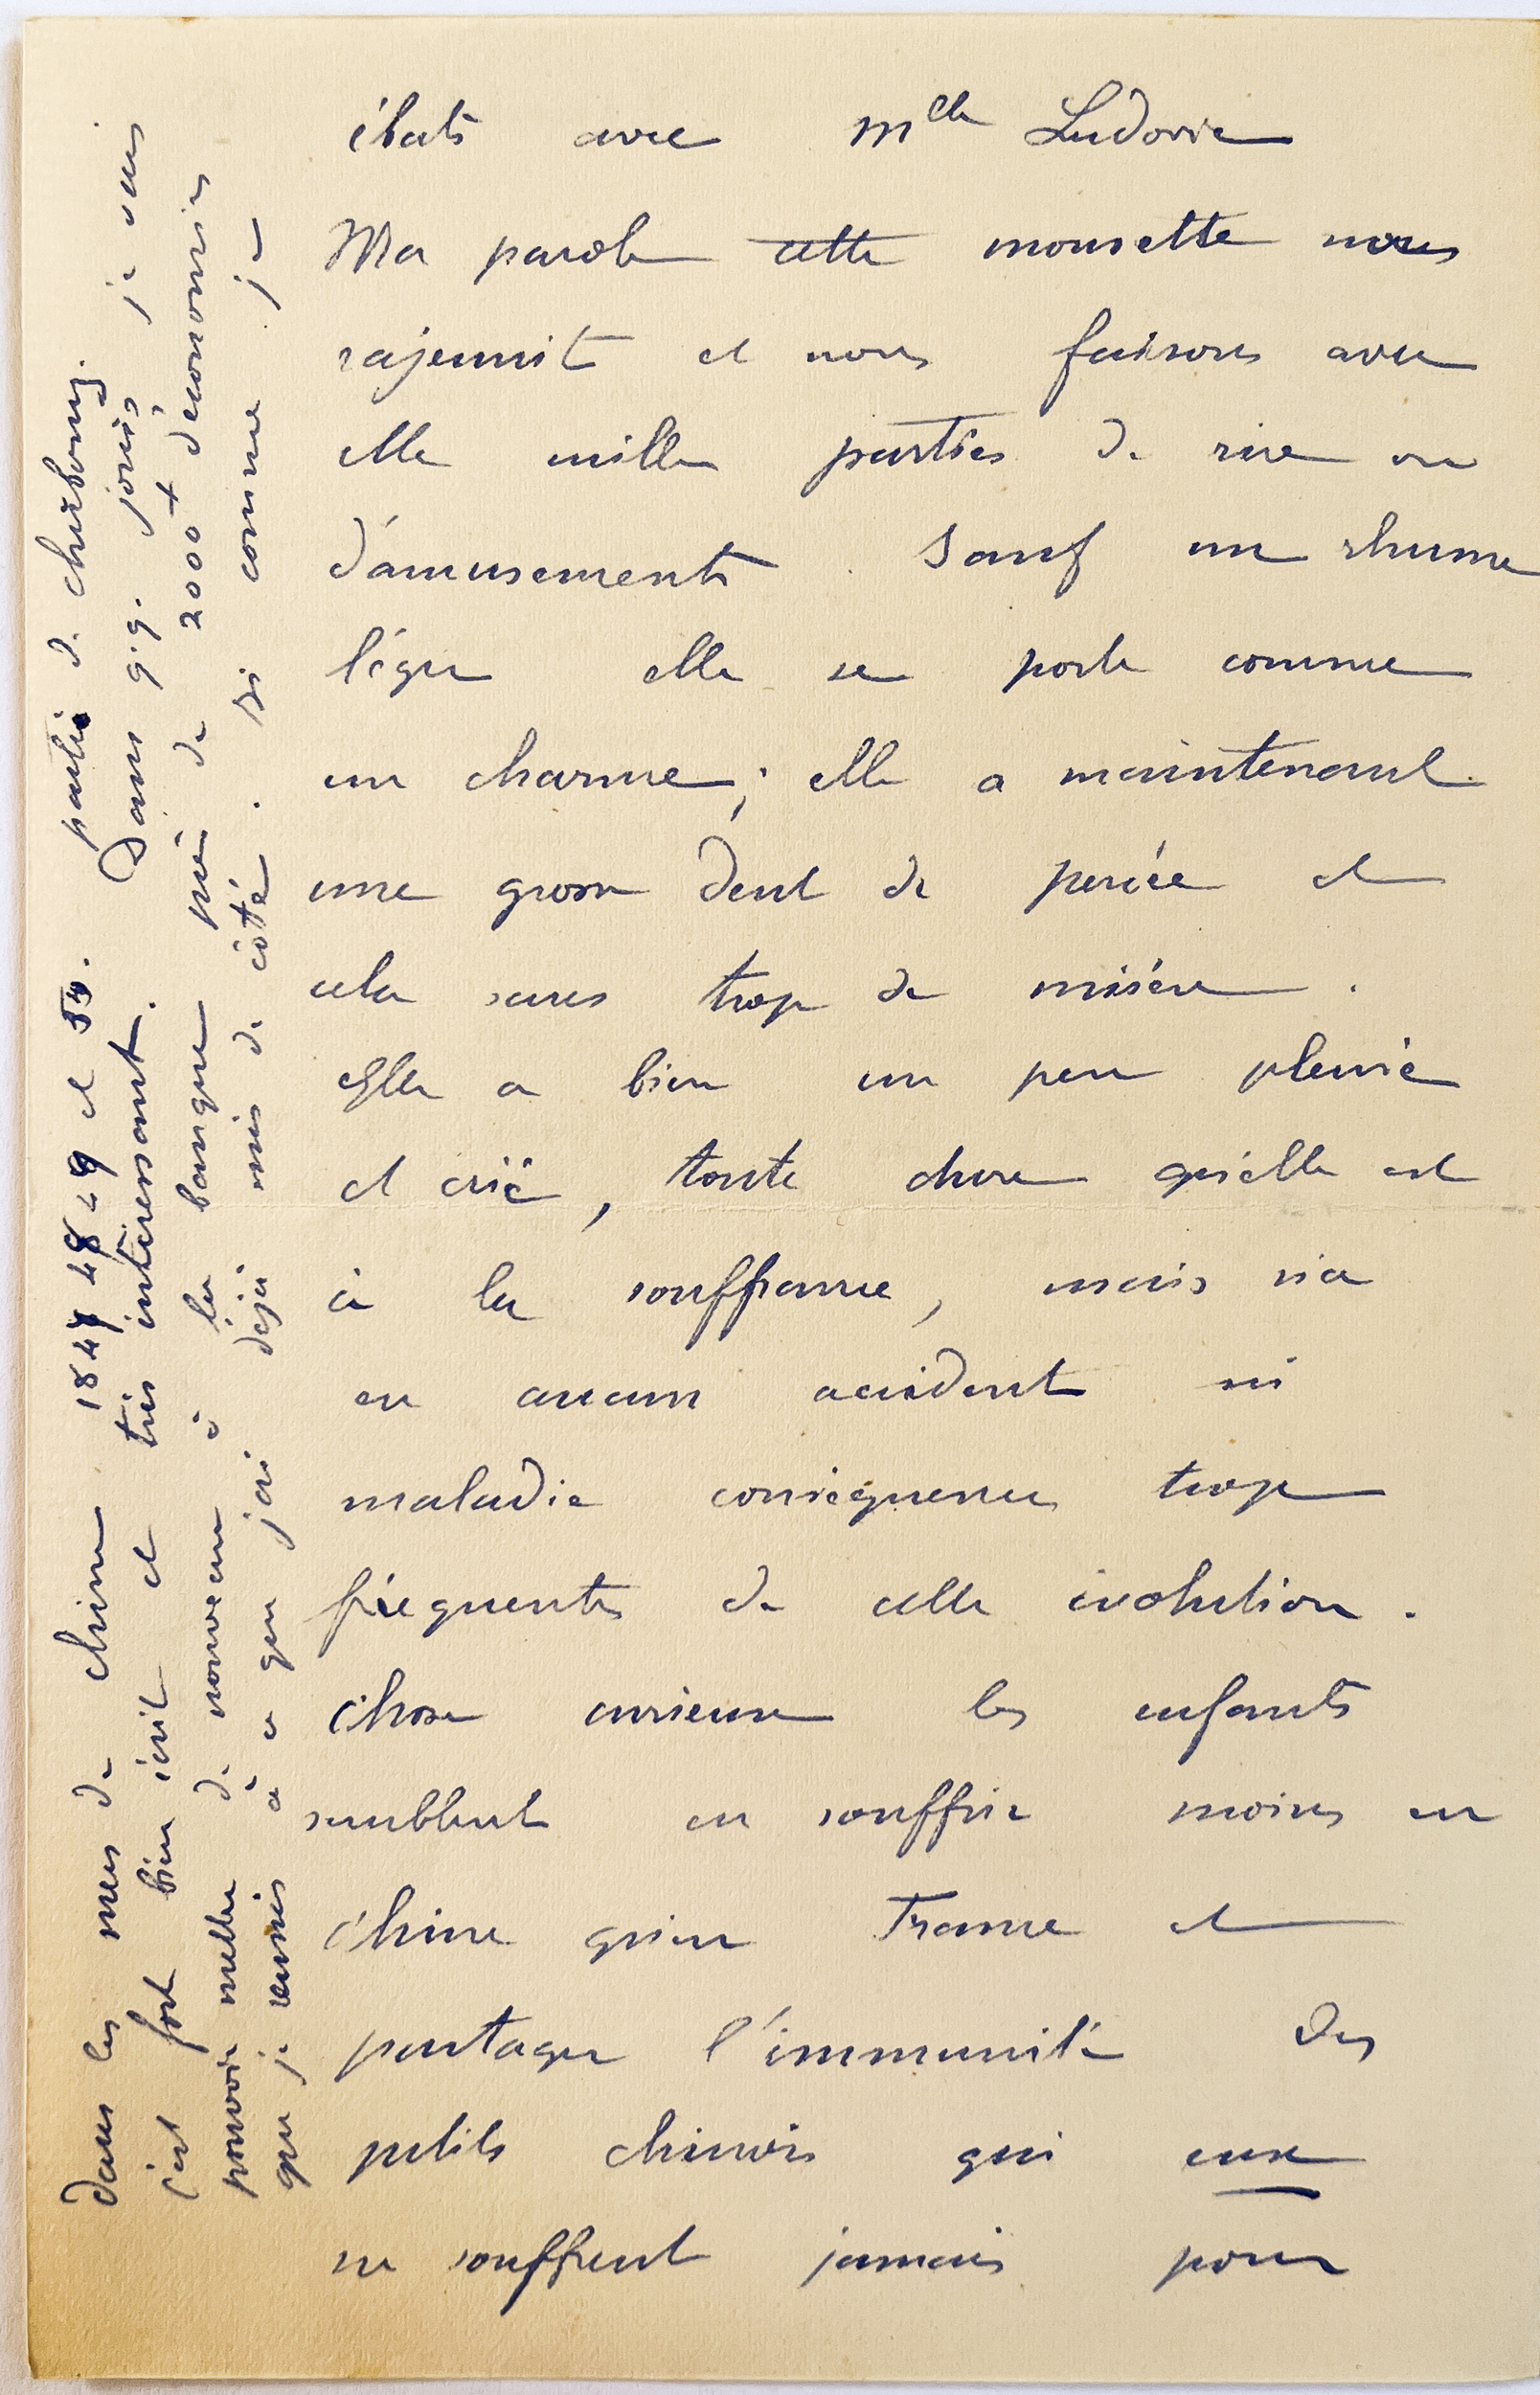 ébats avec Mlle Ludovic
Ma parole cette mousette nous
rajeunit et nous faisons avec
elle mille parties de rire ou
d'amusements. Sauf un rhume
léger elle se porte comme
un charme; elle a maintenant
une grosse dent de percée et
cela sans trop de misère.
Elle a bien un peu pleuré
et crié, toute chose qu'elle est
à la souffrance, mais n'a
eu aucun accident ni
maladie conséquences trop
fréquentes de cette évolution.
Chose curieuse les enfants
semblent en souffrir moins en
Chine qu'en France et
partager l'immunité des
petits chinois qui eux
ne souffrent jamais pour
Dans les mers de Chine 1847 48 49 et 50. partie de
c'est fort bien écrit et très intéressant. Dans q.q. jours je vais
pouvoir mettre de nouveau à la banque près de 2000+ d'économies
que je réunis à ce que j'ai déjà mis de côté. Si comme je